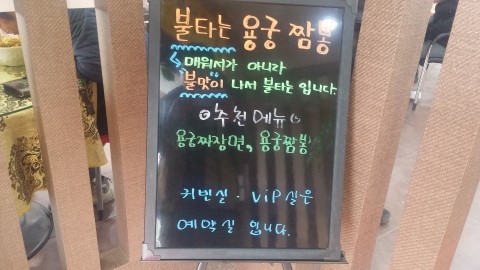 불타는 용궁 짬뽕
매워서가 아니라
불맛이 나서 불타는 입니다.
추천메뉴
용궁짜장면, 용궁짬뽕
커빈실. VIP실은
예약실 입니다.